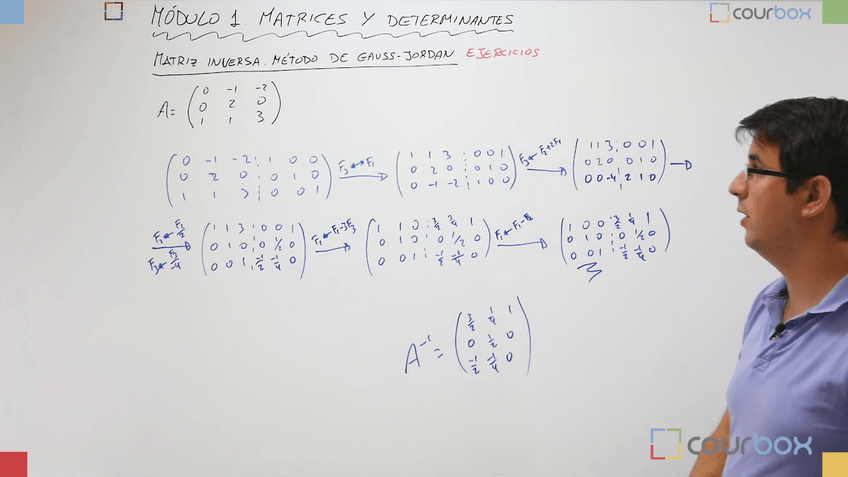 MÓDULO 1. MATRICES Y DETERMINANTES
courbox
MATRIZ INVERSA. MÉTODO DE GAUSS-JORDAN EJERCICIOS
A= ( 0 -1 -2
0 2 0
1 1 3 )
( 0 -1 -2 ⋮ 1 0 0
0 2 0 ⋮ 0 1 0
1 1 3 ⋮ 0 0 1 )
F₃↔F₁
( 1 1 3 ⋮ 0 0 1
0 2 0 ⋮ 0 1 0
0 -1 -2 ⋮ 1 0 0 )
( 1 1 3 ⋮ 0 0 1
0 2 0 ⋮ 0 1 0
0 0 -4 ⋮ 2 1 0 )
( 1 1 3 ⋮ 0 0 1
0 1 0 ⋮ 0 1/2 0
0 0 1 ⋮ -1/2 -1/4 0 )
F₁←F₁-3F₃
( 1 1 0 ⋮ 3/2 3/4 1
0 1 0 ⋮ 0 1/2 0
0 0 1 ⋮ -1/2 -1/4 0 )
F₁←F₁-F₂
( 1 0 0 ⋮ 3/2 1/4 1
0 1 0 ⋮ 0 1/2 0
0 0 1 ⋮ -1/2 -1/4 0 )
A⁻¹= ( 3/2 1/4 1
0 1/2 0
-1/2 -1/4 0 )
courbox